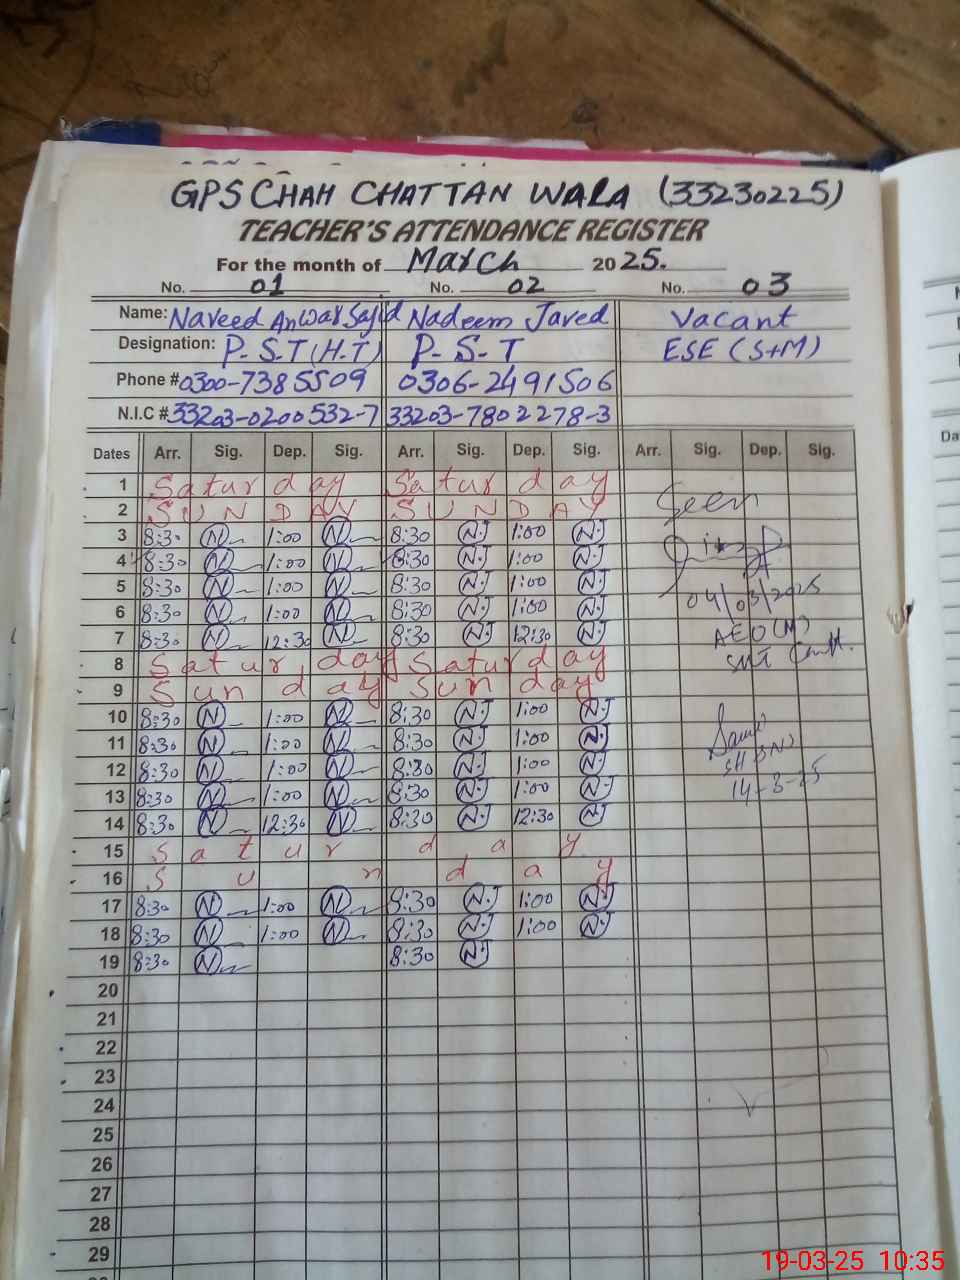 GPS CHAH CHATTAN WALA (33230225)
TEACHER'S ATTENDANCE REGISTER
For the month of March 2025.
No. 01 No. 02 No. 03
Name: Naveed Anwar Sajid Nadeem Javed Vacant
Designation: P-S-T (H.T) P-S-T ESE (S+M)
Phone # 0300-7385509 0306-2491506
N.I.C # 33203-0200532-7 33203-7802278-3
Dates Arr. Sig. Dep. Sig. Arr. Sig. Dep. Sig. Arr. Sig. Dep. Sig.
1 Saturday Saturday Seen
2 SUNDAY SUNDAY
3 8:30 N 1:00 N 8:30 N.J 1:00 N.J
4 8:30 N 1:00 N 8:30 N.J 1:00 N.J
5 8:30 N 1:00 N 8:30 N.J 1:00 N.J 04/03/2025
6 8:30 N 1:00 N 8:30 N.J 1:00 N.J AEO (M)
7 8:30 N 12:30 N 8:30 N.J 12:30 N.J
8 Saturday Saturday
9 Sunday Sunday
10 8:30 N 1:00 N 8:30 N.J 1:00 N.J
11 8:30 N 1:00 N 8:30 N.J 1:00 N.J
12 8:30 N 1:00 N 8:30 N.J 1:00 N.J
13 8:30 N 1:00 N 8:30 N.J 1:00 N.J 14-3-25
14 8:30 N 12:30 N 8:30 N.J 12:30 N.J
15 Saturday
16 Sunday
17 8:30 N 1:00 N 8:30 N.J 1:00 N.J
18 8:30 N 1:00 N 8:30 N.J 1:00 N.J
19 8:30 N 8:30 N.J
20
21
22
23
24
25
26
27
28
29
19-03-25 10:35